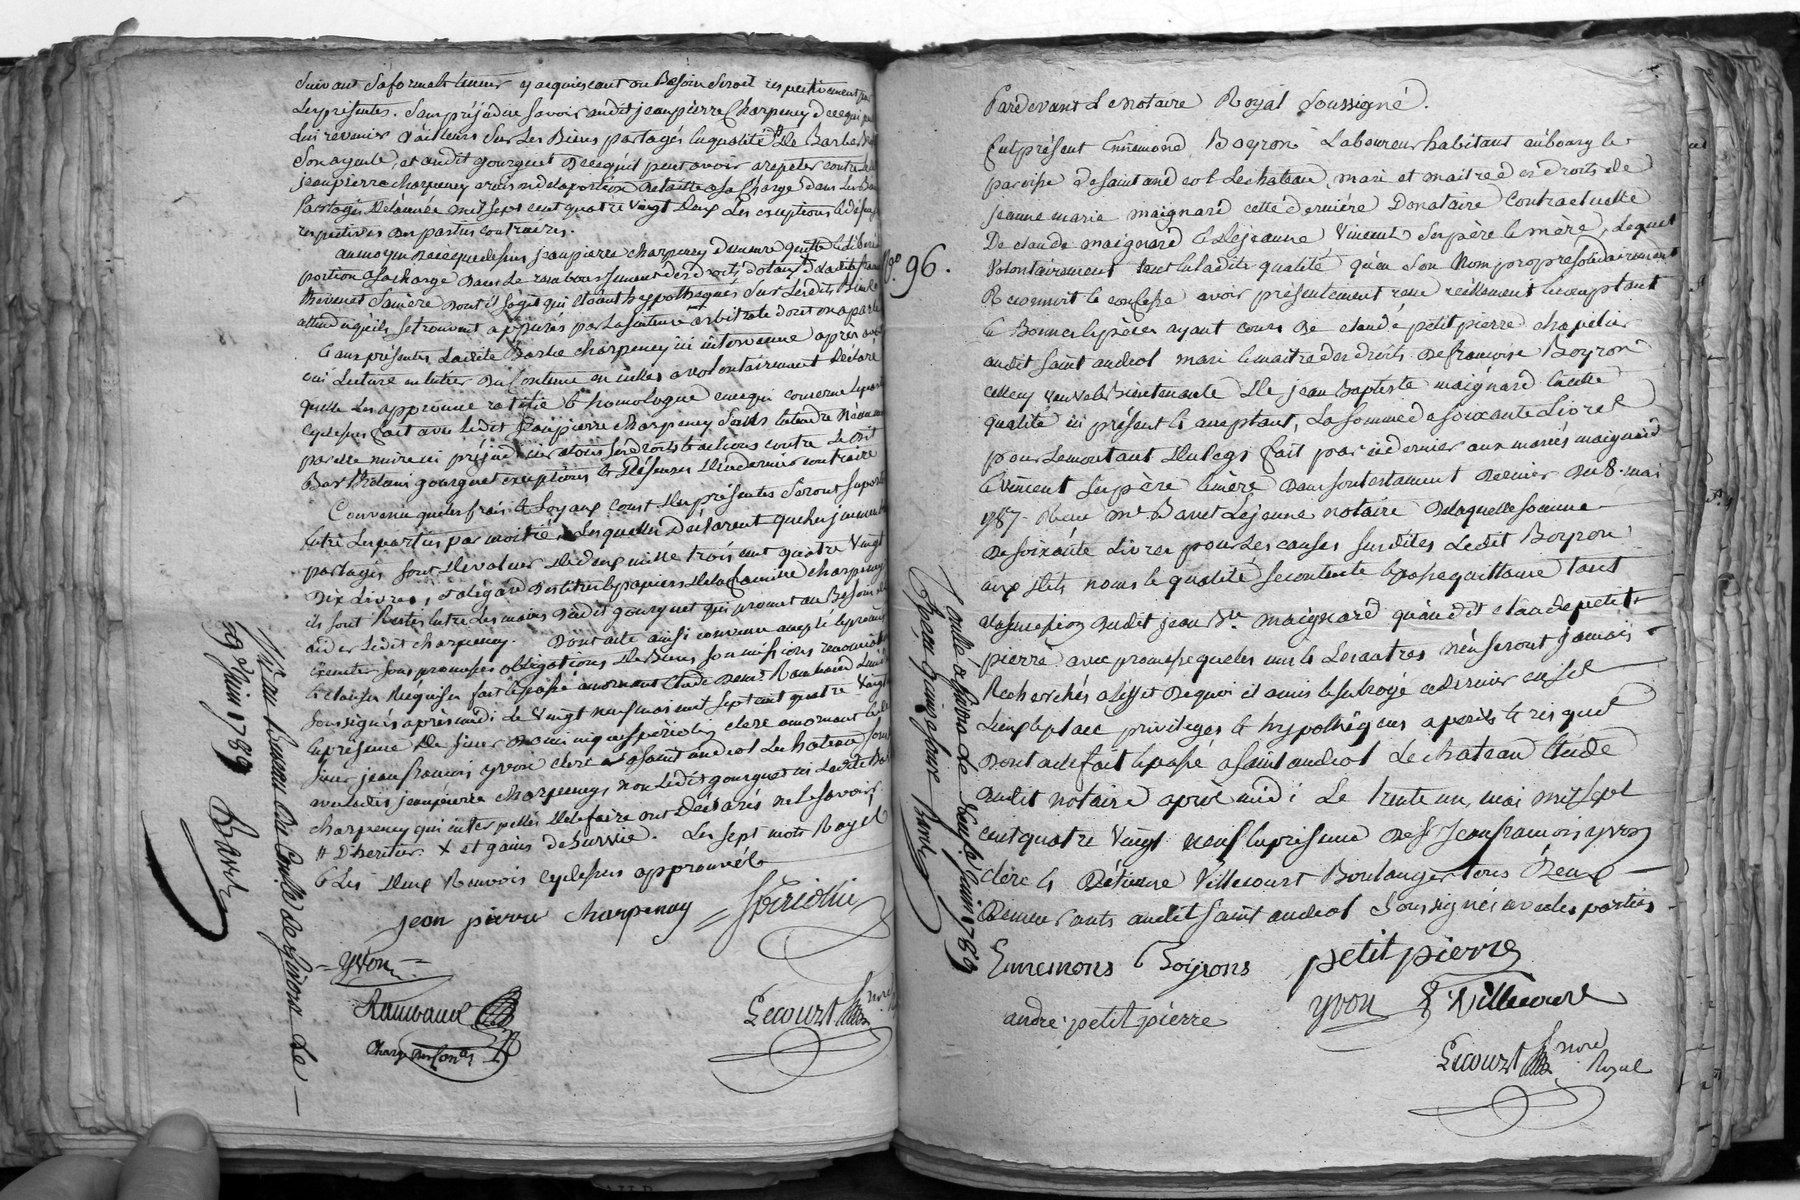 suivant sa forme et teneur y acquiesçant ou Besoin seroit respectivement par
Les présentes. Sans préjudice savoir audit jean pierre Charpeney de ce qui peut
Lui revenir d'ailleurs sur Les Biens partagés en qualité De Barbe
Son ayeule, et audit gourguet De ce qu'il peut avoir a repeter contre Led
jean pierre charpeney a raison de la portion De taille a sa Charge dans Les Biens
Partagés De l'année mil sept cent quatre vingt Deux Les exceptions & défenses
respectives des parties contraires.
au moyen De ce que dessus jean pierre charpeney demeure quitte & libéré
portion a sa charge Dans Le remboursement des droits dotaux de ladite
thevenet Sa mère Dont il s'agit qui étoient hypothequés Sur Lesdits Biens
attendu qu'ils se trouvent appurés par La sentence arbitrale dont on a parlé
& aux présentes Ladite Barbe charpeney ici intervenue après avoir
oui Lecture entière Du Contenu en icelles a volontairement Déclaré
quelle Les approuve ratifie & homologue en ce qui concerne
cy dessus fait avec Ledit Jean pierre charpeney Sans entendre Néanmoins
par elle nuire ni préjudicier a tous ses droits & actions contre Le dit
Barthelami gourguet exceptions & Défenses De ce dernier contraire
Convenu que les frais & Loyaux cousts Des présentes Seront Supportés
entre Les parties par moitié Lesquelles Déclarent que les immeubles
partagés sont De valeur De Deux mille trois cent quatre vingt
Dix Livres, & a l'égard Des titres & papiers De la famille charpeney
ils sont Restés entre Les mains Dudit gourguet qui promet au Besoin
aider Ledit charpeney. Dont acte ainsi convenu accepté & promis
exécuter sous promesses obligations De Biens soumissions renonciations
& clauses Requises fait & passé a mornant étude De me Raimbaud
soussignés après midi Le vingt neuf mai mil sept cent quatre vingt
en présence De sieur Dominique spériolin clerc a mornant & de
sieur jean françois yvon clerc a saint andeol Le chateau
avec Ledit jean pierre charpeney, non Ledit gourguet ni Ladite Barbe
charpeney qui interpellés De le faire ont Déclarés ne Le savoir.
# D'heritier. X et gains De survie. Les sept mots Rayés
& Les Deux Renvois cy dessus approuvés
jean pierre charpenay
Spériolin
Yvon
Raimbaud
Lecourt nore
Charge Des Con.les
Vu au Bureau du Contrôle de givors Le
29 Juin 1789
Baret
N.o 96.
Pardevant Le notaire Royal soussigné.
Fut présent Ennemond Boyron Laboureur habitant au bourg &
paroisse de saint andeol Le chateau, mari et maitre des droits de
jeanne marie maignard cette derniére Donataire Contractuelle
De claude maignard & De jeanne Vincent ses père & mère, Lequel
volontairement tant en Ladite qualité qu'en son Nom propre solidairement
Reconnoit & confesse avoir présentement reçu réellement & comptant
en Bonnes espèces ayant cours De claude petitpierre chapelier
audit saint andeol mari & maitre des droits De françoise Boyron
celle cy veuve & Bientenante De jean Baptiste maignard en cette
qualité ici présent & acceptant, La somme de soixante Livres
pour Le montant Du legs fait par ce dernier aux mariés maignard
& Vincent ses père & mère Dans son testament Dernier Du 8. mai
1787. Reçu me. Baret Lejeune notaire De laquelle somme
De soixante Livres pour Les causes susdites Ledit Boyron
aux dits noms & qualité se contente & passe quittance tant
a la succession Dudit jean Bte. maignard qu'audit claude petit
pierre avec promesse que les uns & Les autres n'en seront jamais
Recherchés a l'effet De quoi il a mis & subrogé ce dernier en ses
Lieux & place privileges & hypothèques a périls & risques
Dont acte fait & passé a saint andeol Le chateau étude
Dudit notaire aprés midi Le trente un mai mil sept
cent quatre vingt neuf en présence De Sr. Jean françois yvon
clerc & D'étienne Villecourt Boulanger tous Deux
Demeurants audit saint andeol Soussignés avec les parties
Ennemons Boyrons
petit pierre
andré petit pierre
yvon
E Villecourt
Lecourt nore
Royal
Contrôlé a givors Le Neuf Juin 1789
Baret